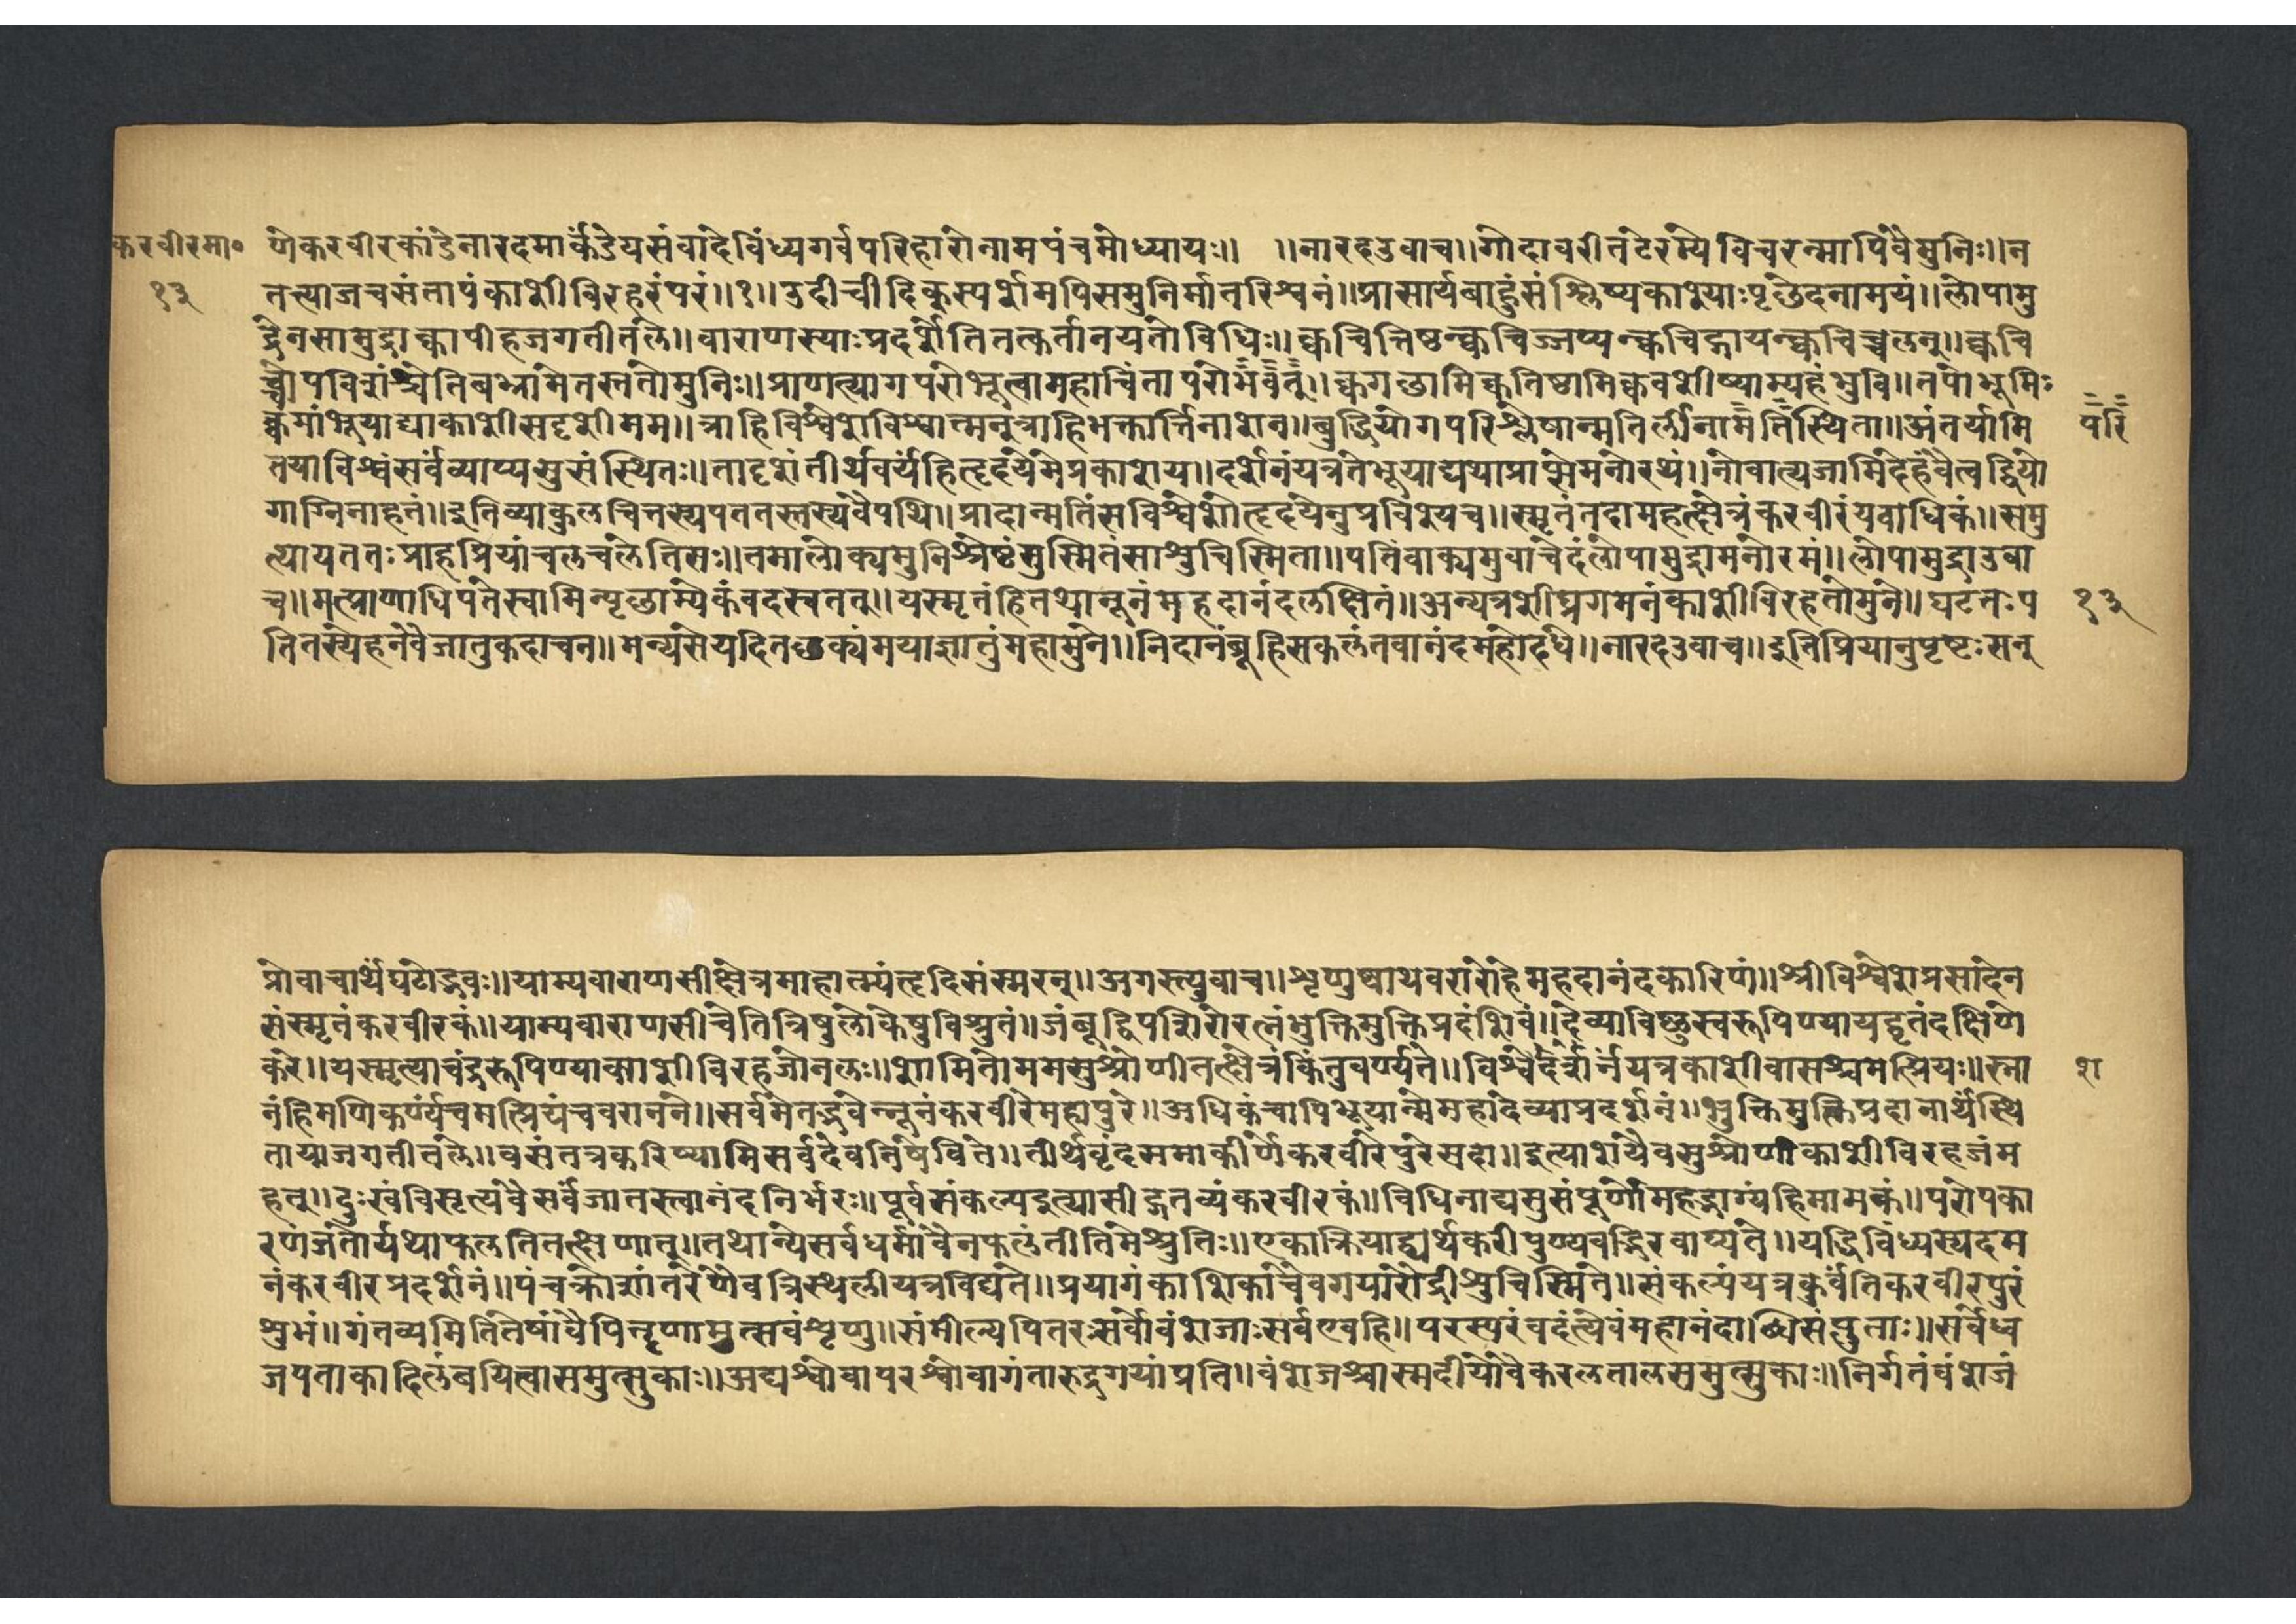 करवीरमा०
१३
णेकरवीरकांडेनारदमार्कंडेयसंवादेविंध्यगर्वपरिहारोनामपंचमोध्यायः॥ ॥नारदउवाच॥गोदावरीतटेरम्येविचरन्मापिवैमुनिः॥न
तत्त्याजचसंतापंकाशीविरहरंपरं॥१॥उदीचीदिक्कस्पर्शमपिसमुनिर्मातरिश्वनं॥प्रासार्यबाहुंसंश्लिष्यकाश्याःपृछेदनामयं॥लोपामु
द्रेनसामुद्राक्वापीहजगतीतले॥वाराणस्याःप्रदर्शेतितत्कर्तानयतोविधिः॥क्वचित्तिष्ठन्क्वचिज्जप्यन्क्वचिद्गायन्क्वचिच्चलन्॥क्वचि
च्चोपविशंश्चेतिबभ्रामेतस्ततोमुनिः॥प्राणत्यागपरोभूत्वामहाचिंतापरोभवत्॥क्वगछामिक्वतिष्ठामिक्ववशीष्याम्यहंभुवि॥तपोभूमिः
क्वमांभूयाद्याकाशीसदृशीमम॥त्राहिविश्वेशविश्वात्मन्त्राहिभक्तार्त्तिनाशन॥बुद्धियोगपरिश्लेषान्मतिर्लीनामेतिस्थिता॥अंतर्यामि
परि
तयाविश्वंसर्वव्याप्यसुसंस्थितः॥तादृशंतीर्थवर्यंहिहृदयेमेप्रकाशय॥दर्शनंयत्रतेभूयाद्यथाप्राप्सेमनोरथं॥नोवात्यजामिदेहंवैत्वद्वियो
गाग्निनाहतं॥इतिव्याकुलचित्तस्यपततस्तस्यवैपथि॥प्रादान्मतिंसविश्वेशोहृदयेनुप्रविश्यच॥स्मृतंतदामहत्क्षेत्रंकरवीरंयवाधिकं॥समु
त्थायततःप्राहप्रियांचलचलेतिसः॥तमालोक्यमुनिश्रेष्ठंसुस्मितंसाशुचिस्मिता॥पतिंवाक्यमुवाचेदंलोपामुद्रामनोरमं॥लोपामुद्राउवा
च॥मत्प्राणाधिपतेस्वामिन्पृछाम्येकंवदस्वतत्॥यस्मृतंहितथान्नूनंमहदानंदलक्षितं॥अन्यत्रशीघ्रगमनंकाशीविरहतोमुने॥घटतःप
१३
तितस्येहनेवैजातुकदाचन॥मन्यसेयदितछक्यंमयाज्ञातुंमहामुने॥निदानंब्रूहिसकलंतवानंदमहोदधे॥नारदउवाच॥इतिप्रियानुपृष्टःसन्
प्रोवाचार्थेघटोद्भवः॥याम्यवाराणसीक्षेत्रमाहात्म्यंहृदिसंस्मरन्॥अगस्त्युवाच॥शृणुष्वाथवरारोहेमहदानंदकारिणं॥श्रीविश्वेशप्रसादेन
संस्मृतंकरवीरकं॥याम्यवाराणसीचेतित्रिषुलोकेषुविश्रुतं॥जंबूद्विपशिरोरत्नंभुक्तिमुक्तिप्रदंशिवं॥देव्याविष्णुस्वरूपिण्यायद्धृतंदक्षिणे
करे॥यस्मृत्याचंद्ररूपिण्याक्साशीविरहजोनलः॥शामितोममसुश्रोणीतत्क्षेत्रंकिंनुवर्ण्यते॥विश्वेदर्शनयत्रकाशीवासश्चमेत्प्रियः॥स्ना
श
नंहिमणिकर्ण्यंचमत्प्रियंचवरानने॥सर्वमेतद्भवेन्नूनंकरवीरेमहापुरे॥अधिकंचापिभूयान्मेमहादेव्याप्रदर्शनं॥भुक्तिमुक्तिप्रदानार्थेस्थि
तायाजगतीतले॥वसंतत्रकरिष्यामिसर्वदेवनिषेविते॥तीर्थवृंदसमाकीर्णेकरवीरेपुरेसदा॥इत्याशंयैवसुश्रोणीकाशीविरहजंम
हत्॥दुःखंविसृत्यवैसर्वंजातस्त्वानंदनिर्भरः॥पूर्वसंकल्पइत्यासीद्गंतव्यंकरवीरकं॥विधिनाद्यसुसंपूर्णोमहद्भाग्यंहिमामकं॥परोपका
रणंजंतोर्यथाफलतितत्क्षणात्॥तथान्येसर्वधर्मावैनफलंतीतिमेश्रुतिः॥एकाक्रियाद्व्यर्थकरीपुण्यवद्भिरवाप्यते॥यद्धिविंध्यस्यदम
नंकरवीरप्रदर्शनं॥पंचक्रोशांतरेणैवत्रिस्थलीयत्रविद्यते॥प्रयागंकाशिकाचैवगयारोद्रीशुचिस्मिते॥संकल्पंयत्रकुर्वंतिकरवीरपुरं
शुभं॥गंतव्यमितितेषांवैपितॄणामुत्सवंशृणु॥संमील्यपितरःसर्वेवंशजाःसर्वएवहि॥परस्परंवदंत्येवंमहानंदाब्धिसंप्लुताः॥सर्वेध्व
जपताकादिलंबयित्वासमुत्सुकाः॥अद्यश्वोवापरश्वोवागंतारुद्रगयांप्रति॥वंशजश्चास्मदीयोवैकरलतालसमुत्सुकाः॥निर्गतंवंशजं